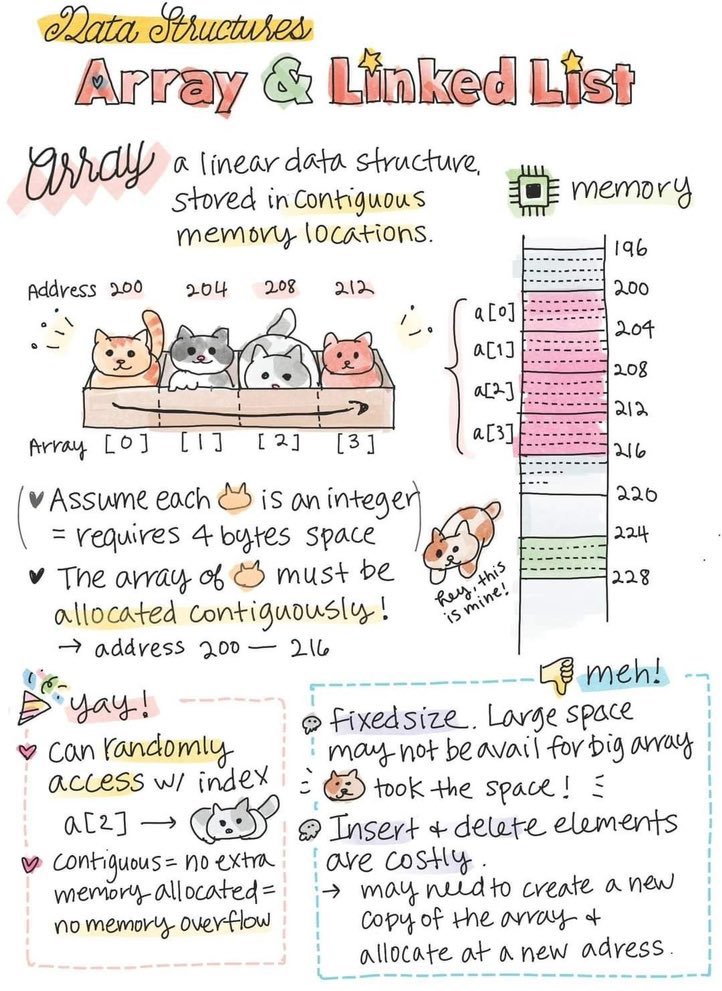 Data Structures
Array & Linked List
array a linear data structure,
stored in contiguous
memory locations.
memory
Address 200 204 208 212
Array [0] [1] [2] [3]
196
200
a[0]
204
a[1]
208
a[2]
212
a[3]
216
220
224
228
hey, this
is mine!
(♥ Assume each is an integer
= requires 4 bytes space)
♥ The array of must be
allocated contiguously!
→ address 200 — 216
yay!
♥ can randomly
access w/ index
a[2] →
♥ contiguous = no extra
memory allocated =
no memory overflow
meh!
fixed size. Large space
may not be avail for big array
took the space!
Insert & delete elements
are costly.
→ may need to create a new
copy of the array &
allocate at a new adress.